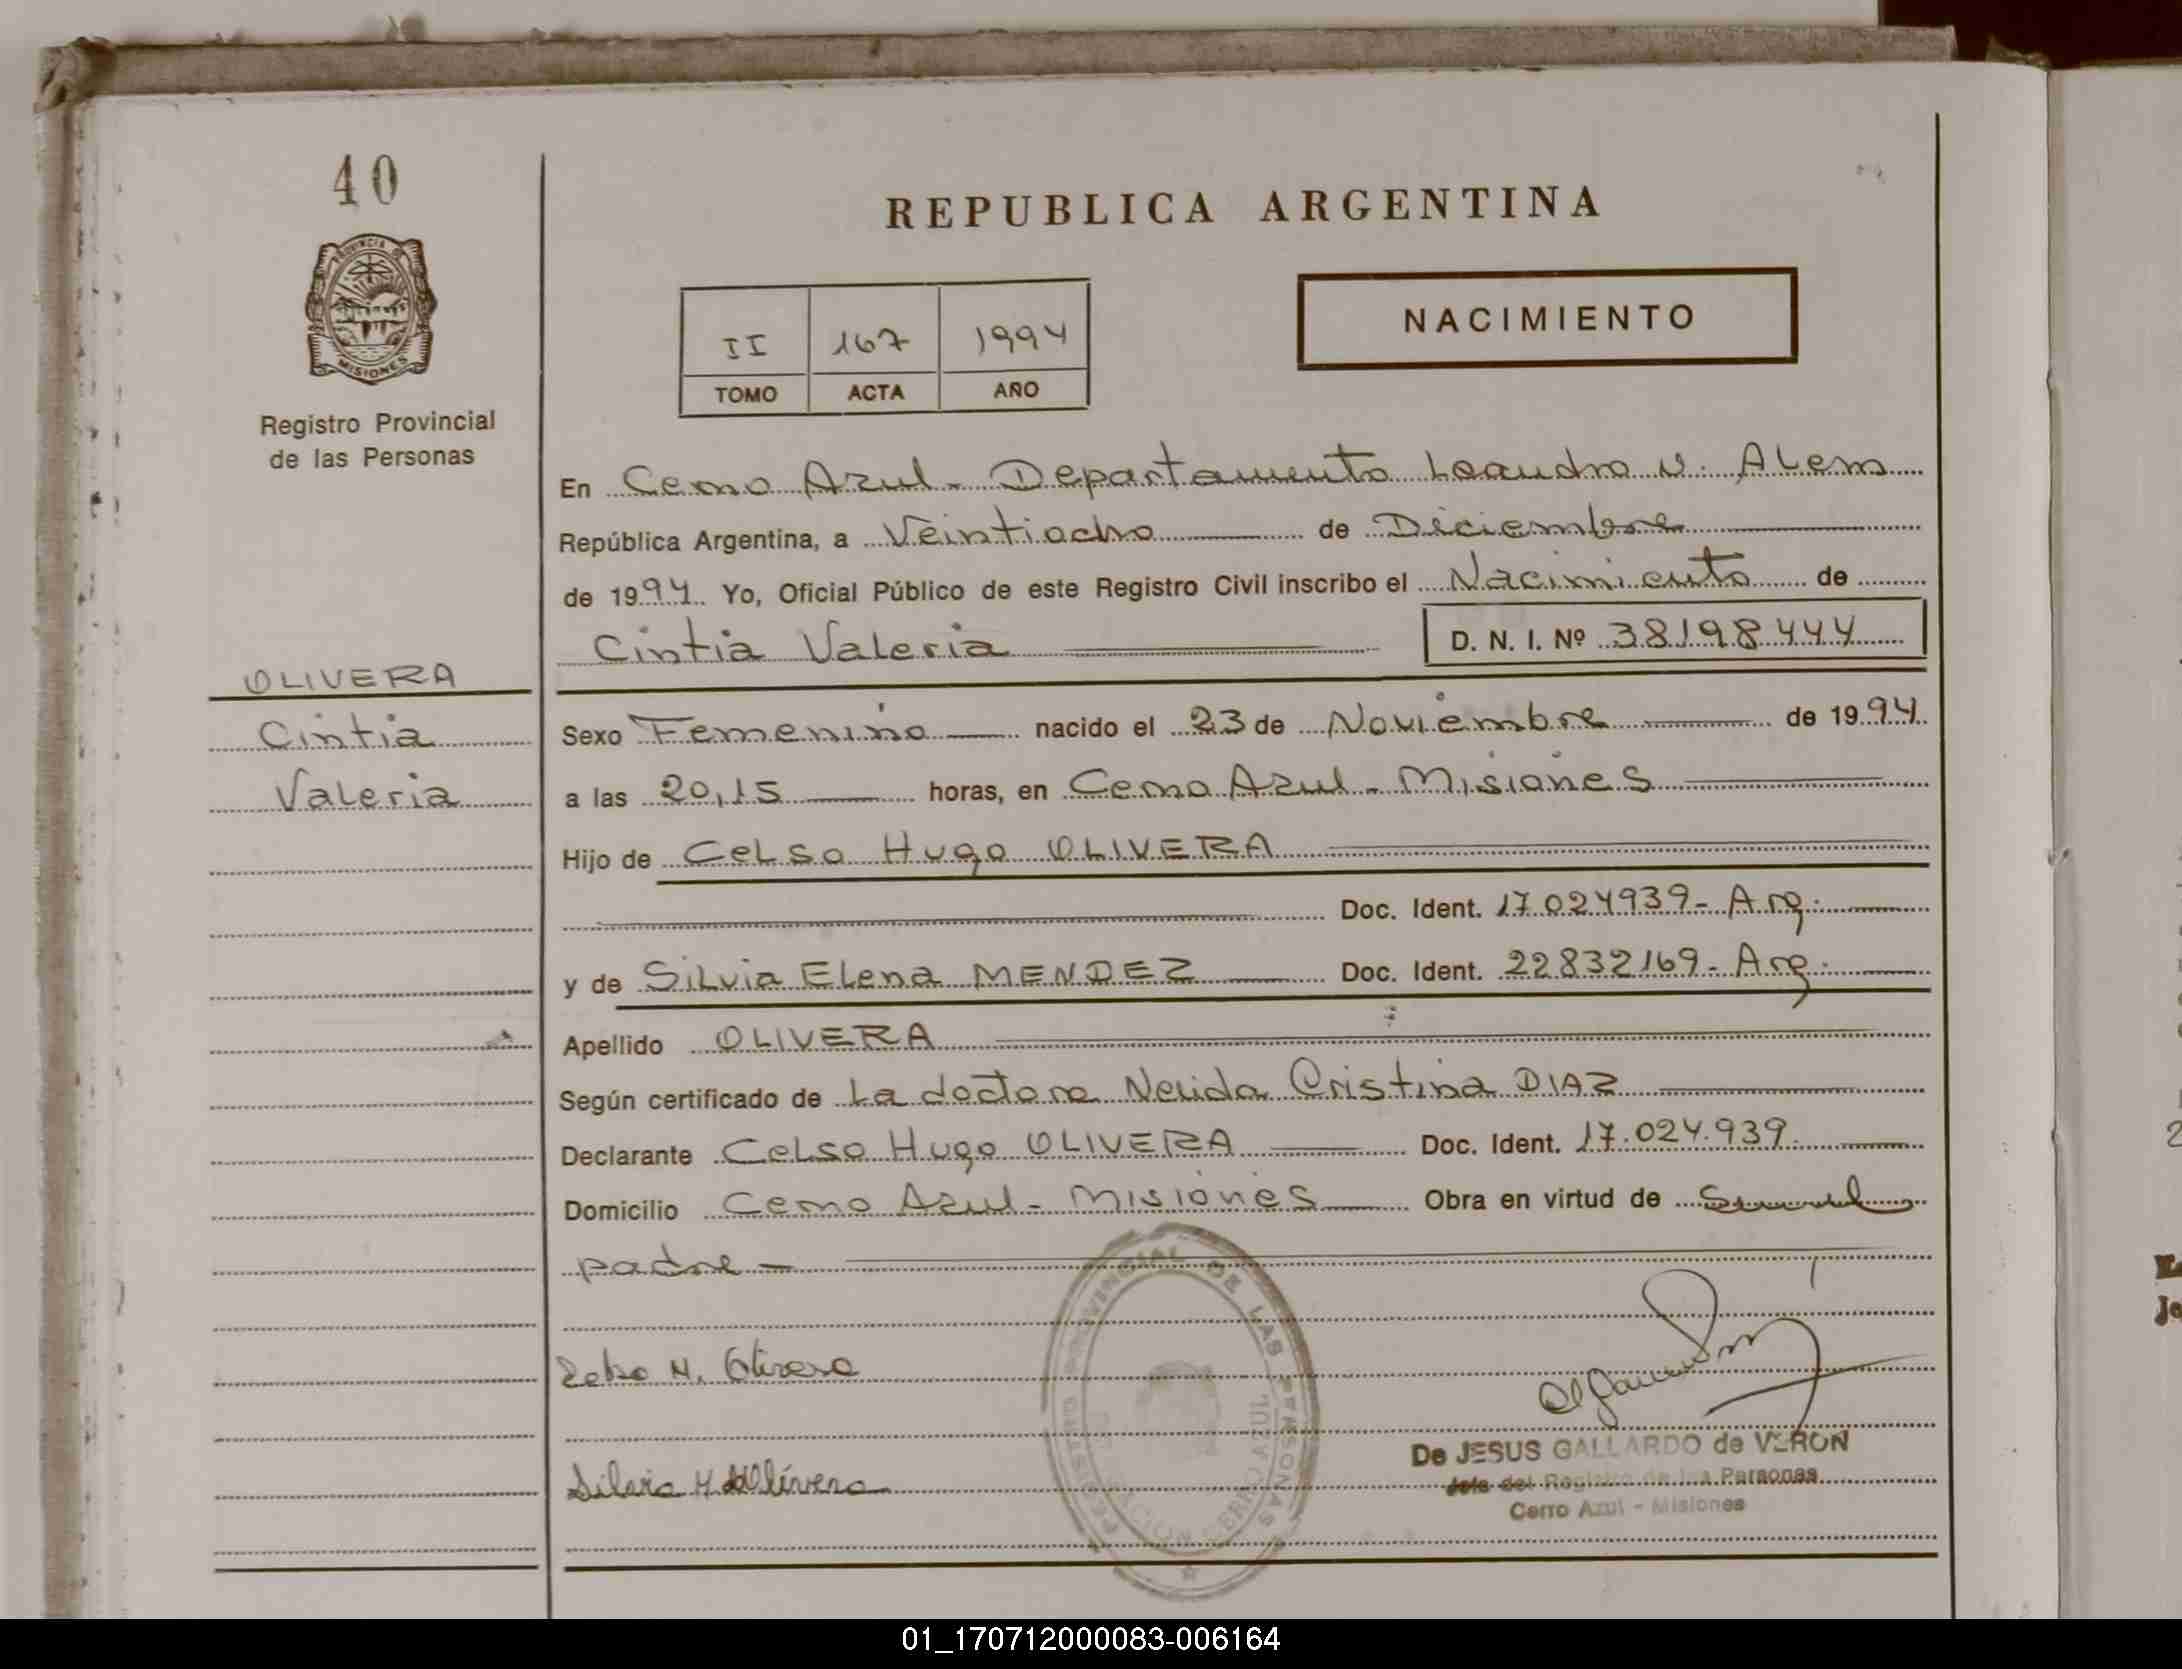 40
REPUBLICA ARGENTINA
PROVINCIA DE
MISIONES
Registro Provincial
de las Personas
II 167 1994
TOMO ACTA AÑO
NACIMIENTO
En Cerro Azul - Departamento Leandro N. Alem
República Argentina, a Veintiocho de Diciembre
de 1994 Yo, Oficial Público de este Registro Civil inscribo el Nacimiento de
Cintia Valeria D. N. I. Nº 38198444
OLIVERA
Cintia
Valeria
Sexo Femenino nacido el 23 de Noviembre de 1994
a las 20,15 horas, en Cerro Azul - Misiones
Hijo de Celso Hugo OLIVERA
Doc. Ident. 17.024939 - Arg.
y de Silvia Elena MENDEZ Doc. Ident. 22832169 - Arg.
Apellido OLIVERA
Según certificado de La doctora Nelida Cristina DIAZ
Declarante Celso Hugo OLIVERA Doc. Ident. 17.024.939
Domicilio Cerro Azul - Misiones Obra en virtud de
padre -
H. Olivera
Silvia
REGISTRO PROVINCIAL DE LAS PERSONAS
CERRO AZUL
De JESUS GALLARDO de VERON
Jefe del Registro de las Personas
Cerro Azul - Misiones
01_170712000083-006164